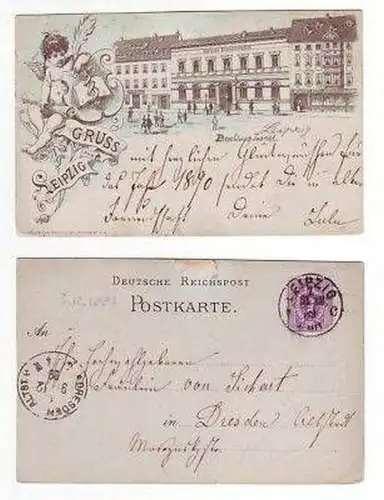 GRUSS
LEIPZIG
mit herzlichen Glückwünschen für
das Jahr 1890 sendet dir in alter
Freundschaft Deine Lulu
DEUTSCHE REICHSPOST
POSTKARTE.
An
LEIPZIG
C
Hochwohlgeboren
Fräulein von Sichart
in Dresden Altstadt
DRESDEN ALTST.